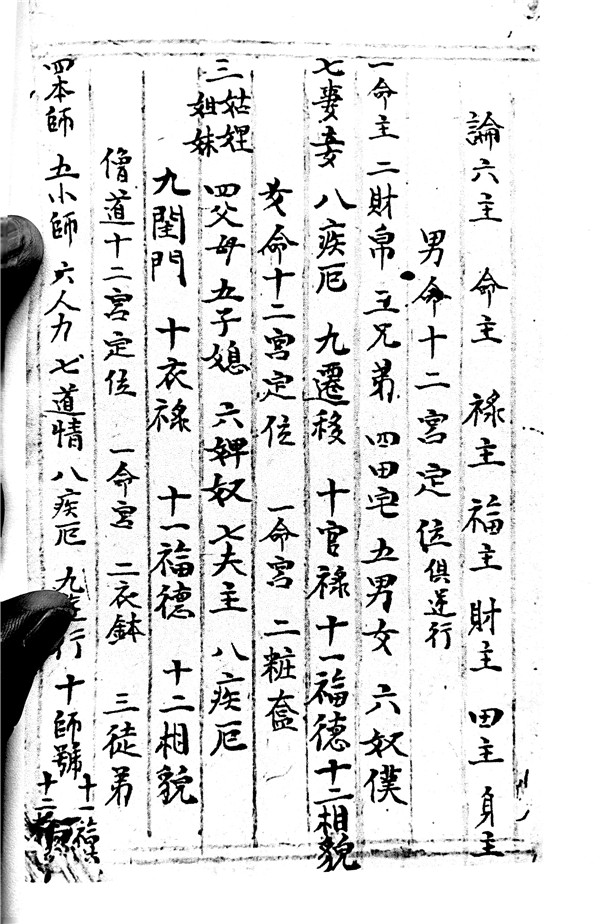 論六主 命主 祿主 福主 財主 田主 身主
男命十二宮定位俱逆行
一命主 二財帛 三兄弟 四田宅 五男女 六奴僕
七妻妾 八疾厄 九遷移 十官祿 十一福德 十二相貌
女命十二宮定位 一命宮 二粧奩
三姑娌姐妹 四父母 五子媳 六婢奴 七夫主 八疾厄
九閨門 十衣祿 十一福德 十二相貌
僧道十二宮定位 一命宮 二衣鉢 三徒弟
四本師 五小師 六人力 七道情 八疾厄 九遊行 十師號 十一福 十二